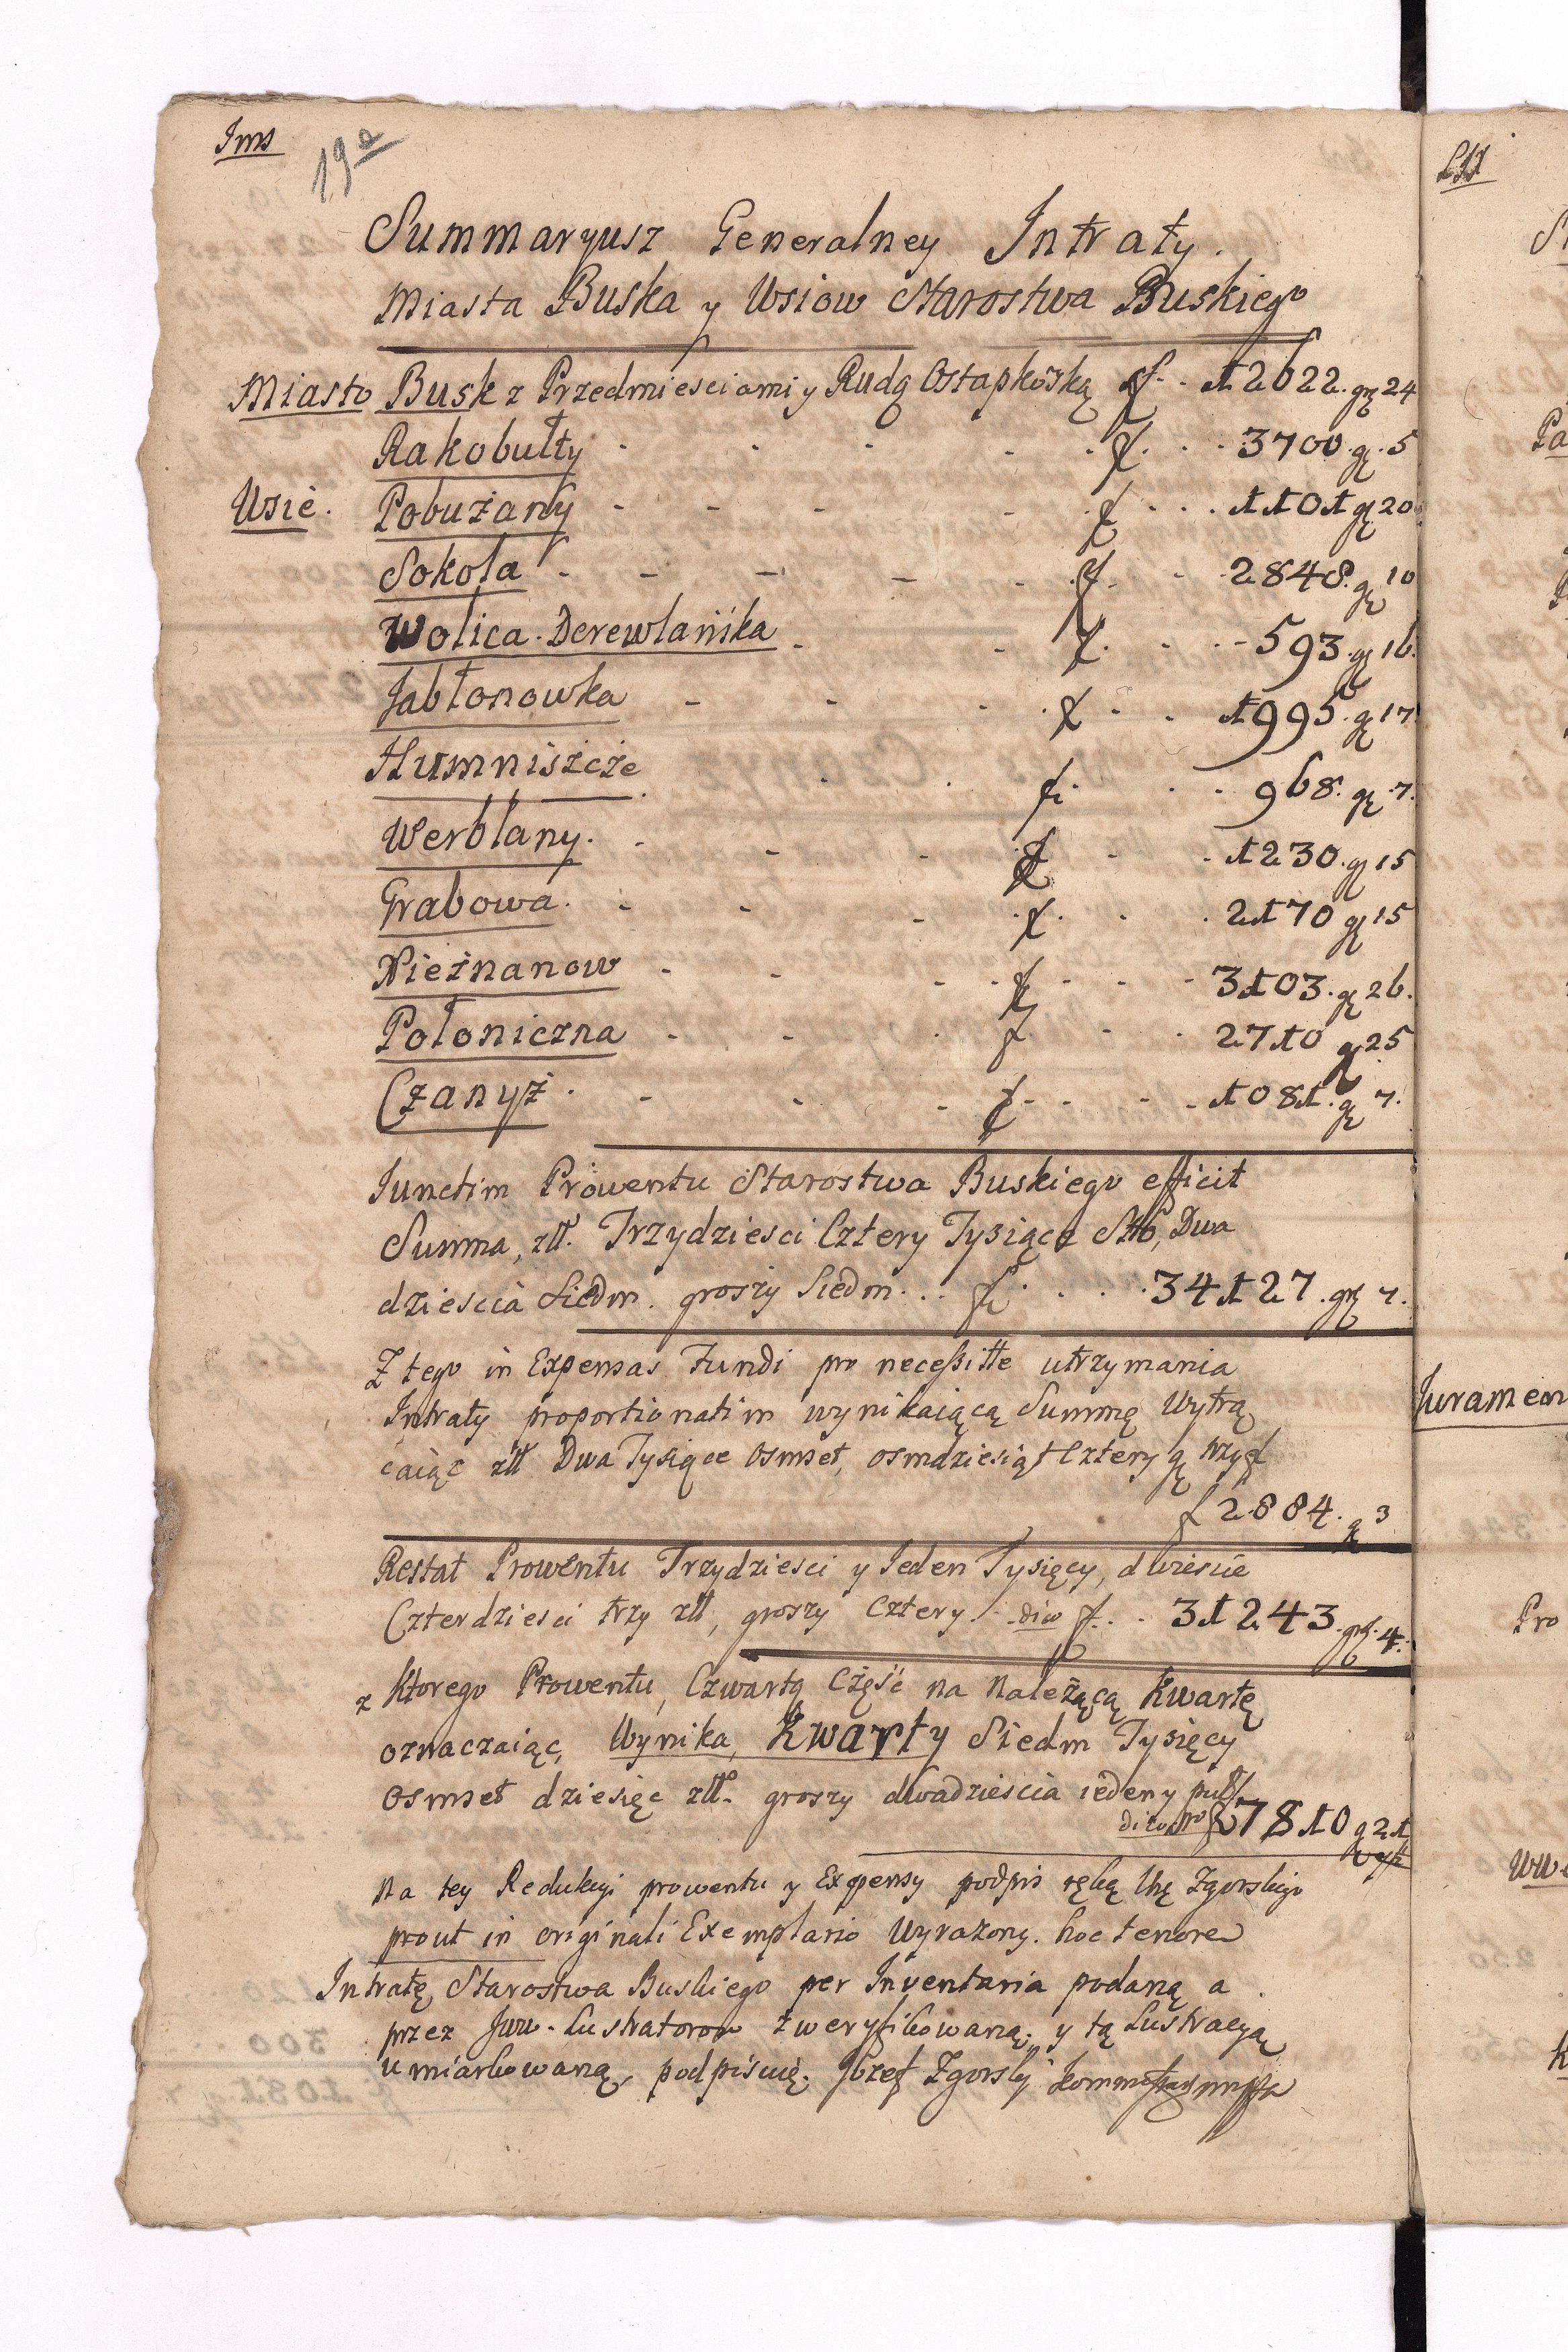 Ims
19a
Summaryusz Generalney Intraty.
Miasta Buska y Wsiow Starostwa Buskiego
Miasto Busk z Przedmiesciami y Rudą Ostapkoską f. 12622. gr 24
Rakobutty f. 3700. gr. 5
Wsie. Pobużany f. 1101 gr 20
Sokola f. 2848. gr 10
Wolica Derewlańska f. 593. gr 16.
Jabłonowka f. 1995. gr 17
Humniszcze f. 968. gr 7.
Werblany. f. 1230. gr 15
Grabowa. f. 2170 gr 15
Nieznanow f. 3103. gr 26.
Połoniczna f. 2710 gr 25
Czanyż. f. 1081. gr 7.
Iunctim Prowentu Starostwa Buskiego efficit
Summa, złł. Trzydziesci Cztery Tysiące Sto, Dwa
dziescia Siedm. groszy Siedm... f. 34127. gr 7.
Z tego in Expensas Fundi pro necessitte utrzymania
Intraty proportionatim wynikaiącą Summę Wytrą
caiąc złł Dwa Tysiące Osmset, osmdziesiąt Cztery gr trzy
f 2884. gr 3
Restat Prowentu Trzydziesci y Ieden Tysięcy, dwiescie
Czterdziesci trzy złł, groszy Cztery. dico f. 31243. gr. 4.
z ktorego Prowentu, Czwartą Część na należącą Kwartę
oznaczaiąc, Wynika, Kwarty Siedm Tysięcy
osmset dziesięc złł. groszy dwadziescia ieden y puł
dico f 7810 g 21
Na tey Redukcyi prowentu y Expensy podpis ręką Zgorskiego
prout in originali Exemplario Wyrazony. hoc tenore
Intratę Starostwa Buskiego per Inventaria podaną a
przez Jww. Lustratorow zweryfikowaną, y tą Lustracyą
umiarkowaną, podpisuię. Jozef Zgorski
LSI
Jurament
Pro